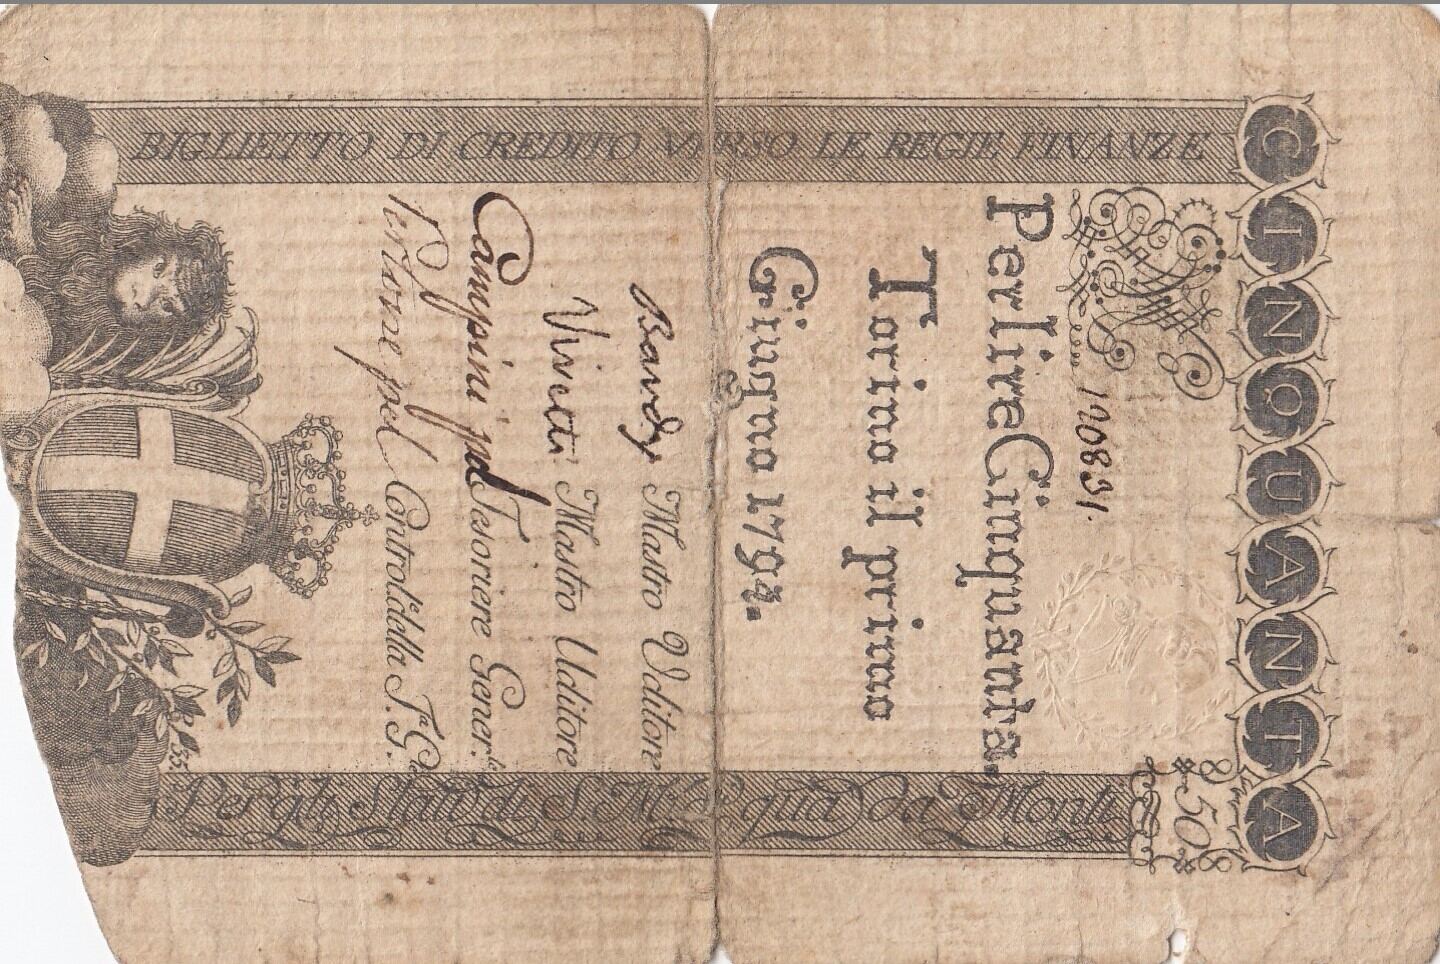 CINQUANTA
BIGLIETTO DI CREDITO VERSO LE REGIE FINANZE
120831.
8 50 8
Per lire Cinquanta.
Torino il primo
Giugno 1794.
Bandy Mastro Uditore
Vinetti Mastro Uditore
Campini pel Tesoriere Gener.le
pel Control. della T.a G.le
35.
Per gli Stati di S. M. di qua da Monti